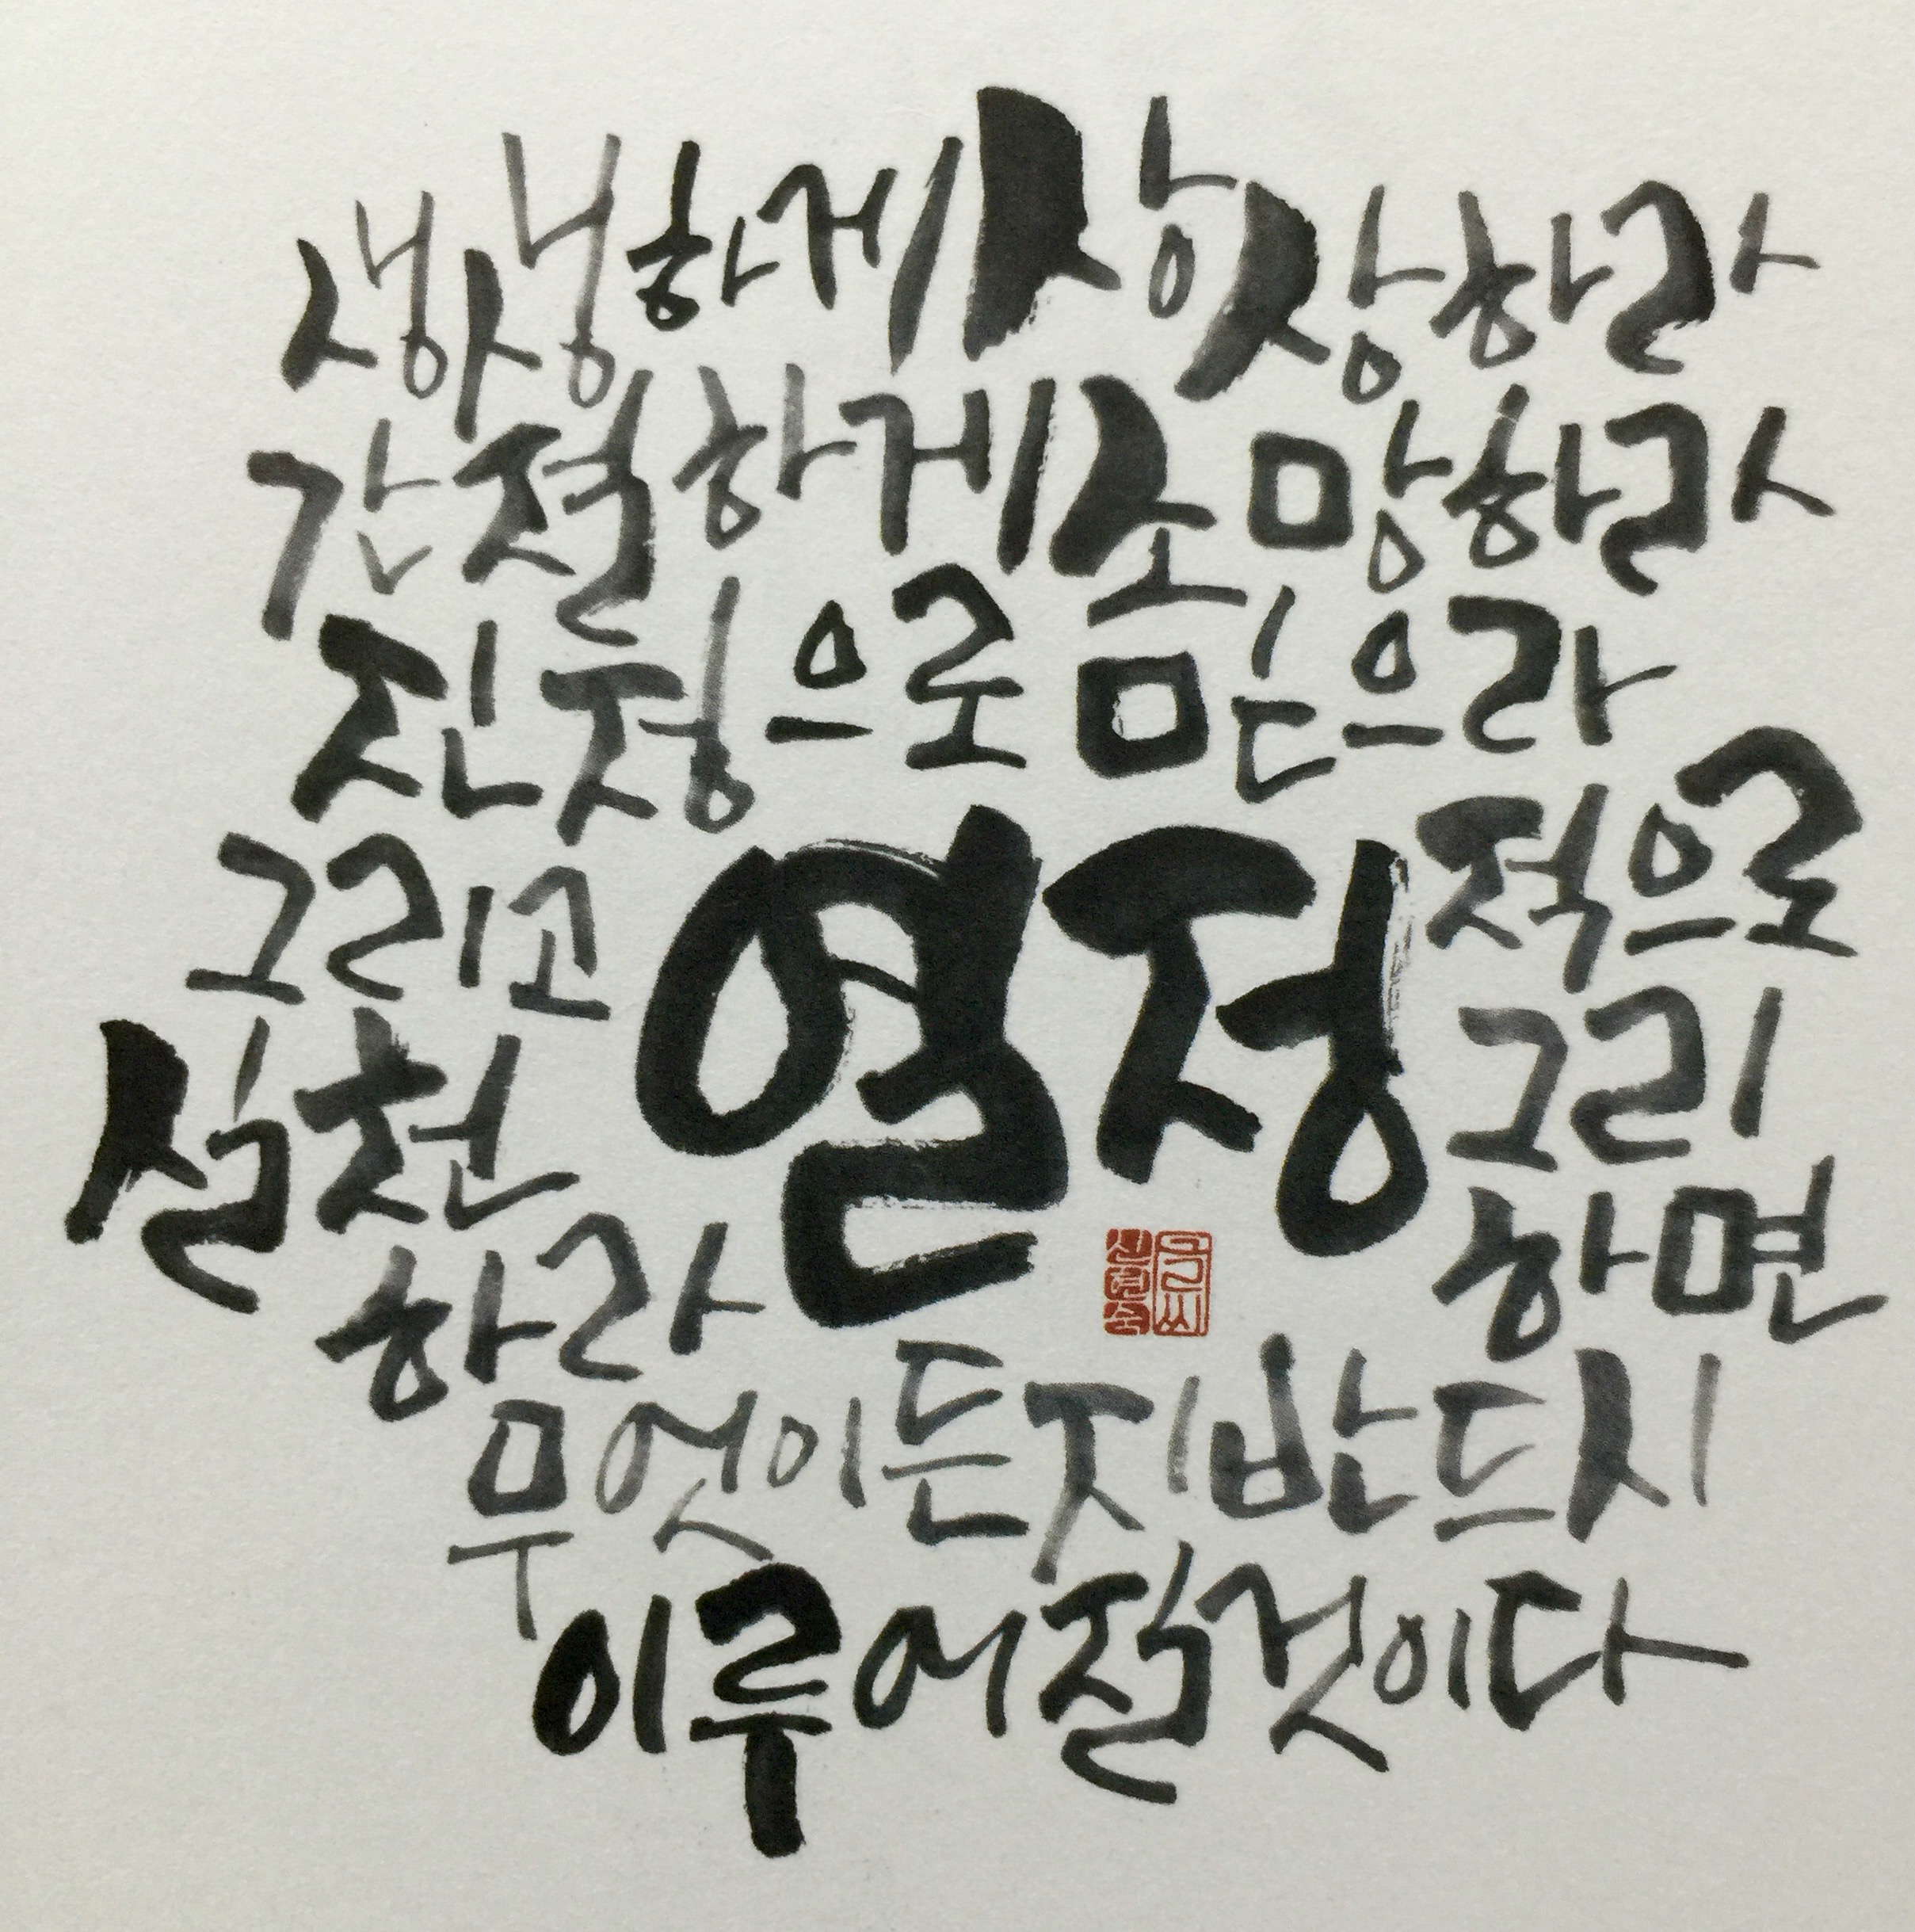 생생하게 상상하라
간절하게 소망하라
진정으로 믿으라
그리고 열정적으로
실천하라 그리하면
무엇이든지 반드시
이루어질 것이다